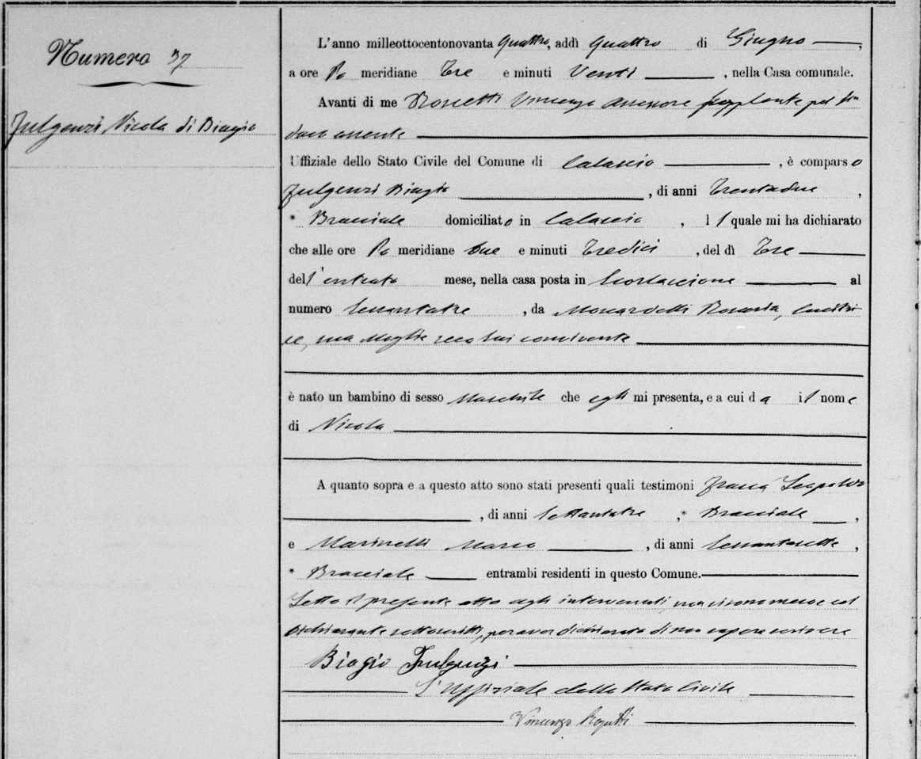 Numero 37
Fulgenzi Nicola di Biagio
L'anno milleottocentonovanta quattro, addì quattro di Giugno,
a ore Po meridiane tre e minuti Venti, nella Casa comunale.
Avanti di me Vincenzo assessore supplente pel Sin
daco assente
Uffiziale dello Stato Civile del Comune di Calascio, è comparso
Fulgenzi Biagio, di anni trentadue,
Bracciale domiciliato in Calascio, il quale mi ha dichiarato
che alle ore Po meridiane due e minuti tredici, del dì tre
dell'entrato mese, nella casa posta in al
numero sessantatre, da Rosaria,
sua moglie seco lui convivente
è nato un bambino di sesso maschile che egli mi presenta, e a cui dà il nome
di Nicola
A quanto sopra e a questo atto sono stati presenti quali testimoni
, di anni settantatre, Bracciale,
e Marinelli Marco, di anni sessantasette,
Bracciale entrambi residenti in questo Comune.
Letto il presente atto agli intervenuti, me col
dichiarante sottoscritti, per aver dichiarato di non sapere scrivere
Biagio Fulgenzi
L'Uffiziale dello Stato Civile
Vincenzo